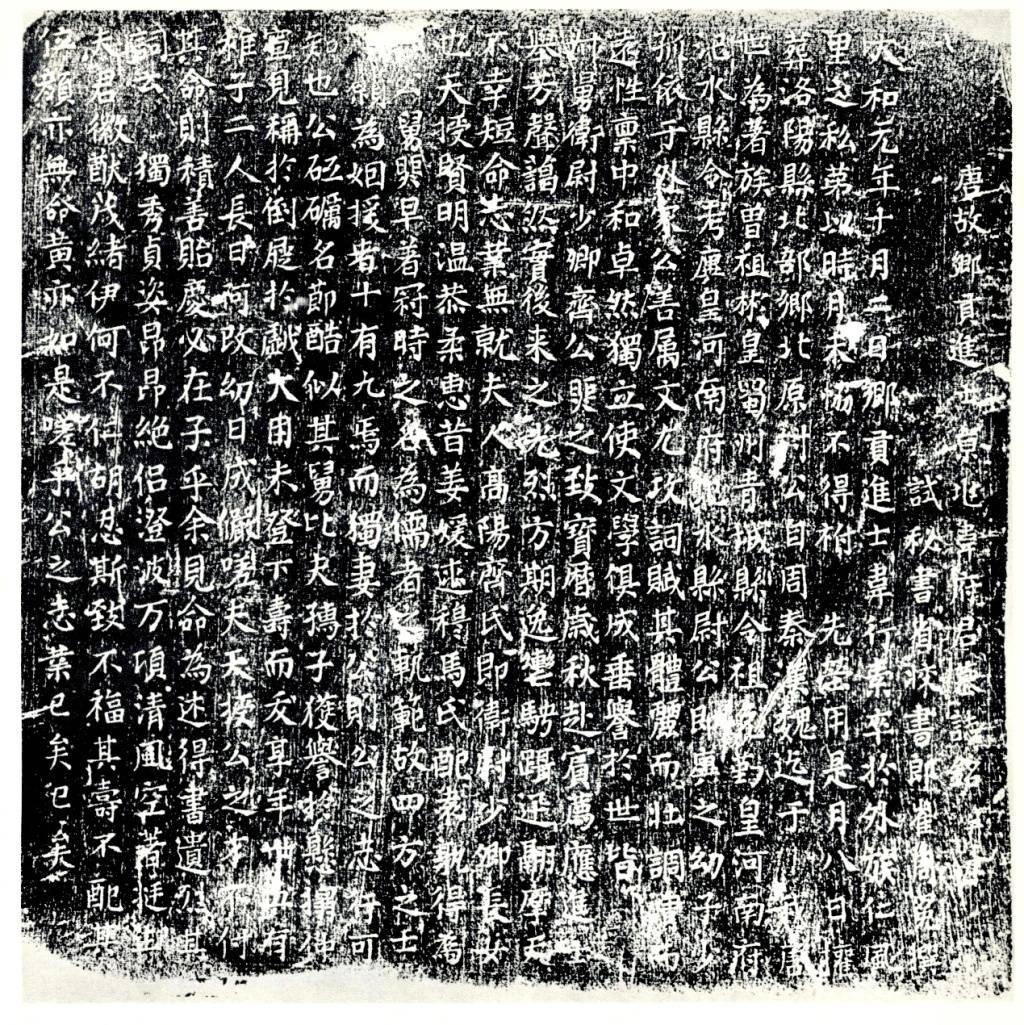 唐故鄉貢進士京兆韋府君墓誌銘
試秘書省校書郎崔
大和元年十月二日鄉貢進士韋行素卒於外族仁風
里之私第以時月未協不得祔先塋用是月八日權
葬洛陽縣北部鄉北原州公自周秦漢魏迄于
世為著族曾祖彬皇蜀州青城縣令祖皇河南府
汜水縣令考皇河南府汜水縣尉公即之幼子少
孤依于外家公善属文尤攻詞賦其體麗而壯調
遠性禀中和卓然獨立使文學俱成垂譽於世皆
舅衛尉少卿齊公煚之致寶曆歲秋赴賓薦應進士
舉芳聲謁然實後來之光烈方期逸轡騁躡迅翮摩天
不幸短命志業無就夫人高陽齊氏即衛尉少卿長女
也天授賢明温恭柔惠昔姜嫒適穆馬氏配袁觀得為
舅煚早著冠時之為儒者軌範故四方之士
願為姻援者十有九焉而獨妻於公則公之志行可
知也公砥礪名莭酷似其舅比夫穗子獲譽於懸
宣見稱於倒屣於戲大用未登下壽而夭享年卅五有
雉子二人長曰阿改幼曰成儼嗟夫天授公之才不付
其命則積善貽慶必在子乎余見命為述得書遺烈其
詞云獨秀貞姿昂昂絶侶澄波万頃清風空著挺
夫君徽猷茂緒伊何不仁胡忍斯致不福其壽不配其
位顔亦無命黄亦如是嗟乎公之志業已矣已矣